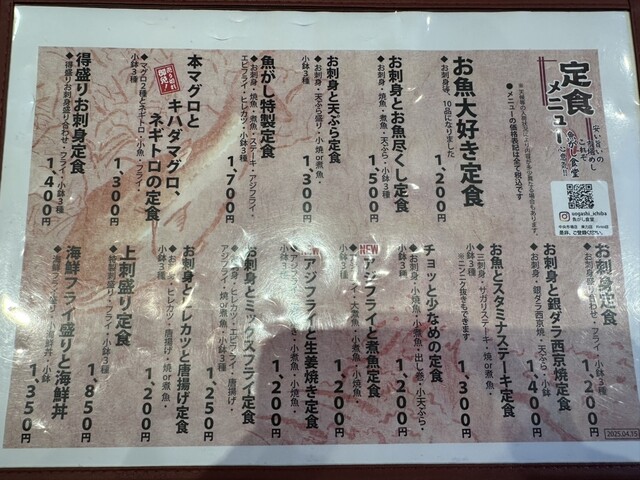 定食
メニュー
安い旨いの
市場めし
これぞ
魚がし食堂
心意気!!
uogashi_ichiba
魚がし食堂
●メニューの価格表記は全て税込です
お魚大好き定食
◆お刺身等、10品になりました
1,200円
お刺身とお魚尽くし定食
◆お刺身・焼魚・煮魚・天ぷら・小鉢3種
1,500円
お刺身と天ぷら定食
◆お刺身・天ぷら盛り・小焼or煮魚・
小鉢3種
1,300円
魚がし特製定食
◆お刺身・焼魚・煮魚・ステーキ・アジフライ・
エビフライ・ヒレカツ・小鉢3種
1,700円
本マグロと
キハダマグロ、
ネギトロの定食
売り切れ
御免!
◆マグロ2種とネギトロ・小魚・フライ・
小鉢3種
1,300円
得盛りお刺身定食
◆得盛りお刺身盛り合わせ・フライ・小鉢3種
1,400円
お刺身定食
1,200円
お刺身と銀ダラ西京焼定食
◆お刺身・銀ダラ西京焼・天ぷら・小鉢
1,400円
お魚とスタミナステーキ定食
◆三刺身・サガリステーキ・焼or煮魚・
小鉢3種
※ニンニク抜きもできます
1,300円
チョッと少なめの定食
◆お刺身・小焼魚・小煮魚・出し巻・小天ぷら・
小鉢3種
1,200円
NEW
アジフライと煮魚定食
1,200円
アジフライと生姜焼き定食
1,200円
お刺身とミックスフライ定食
◆お刺身・ヒレカツ・エビフライ・唐揚げ・
アジフライ・焼or煮魚・小鉢3種
1,250円
お刺身とヒレカツと唐揚げ定食
◆お刺身・ヒレカツ・唐揚げ・焼or煮魚・
小鉢3種
1,200円
上刺盛り定食
◆特製刺盛り・フライ・小鉢3種
1,850円
海鮮フライ盛りと海鮮丼
◆海鮮フライ盛り・小海鮮丼・小鉢
1,350円
2025.04.15